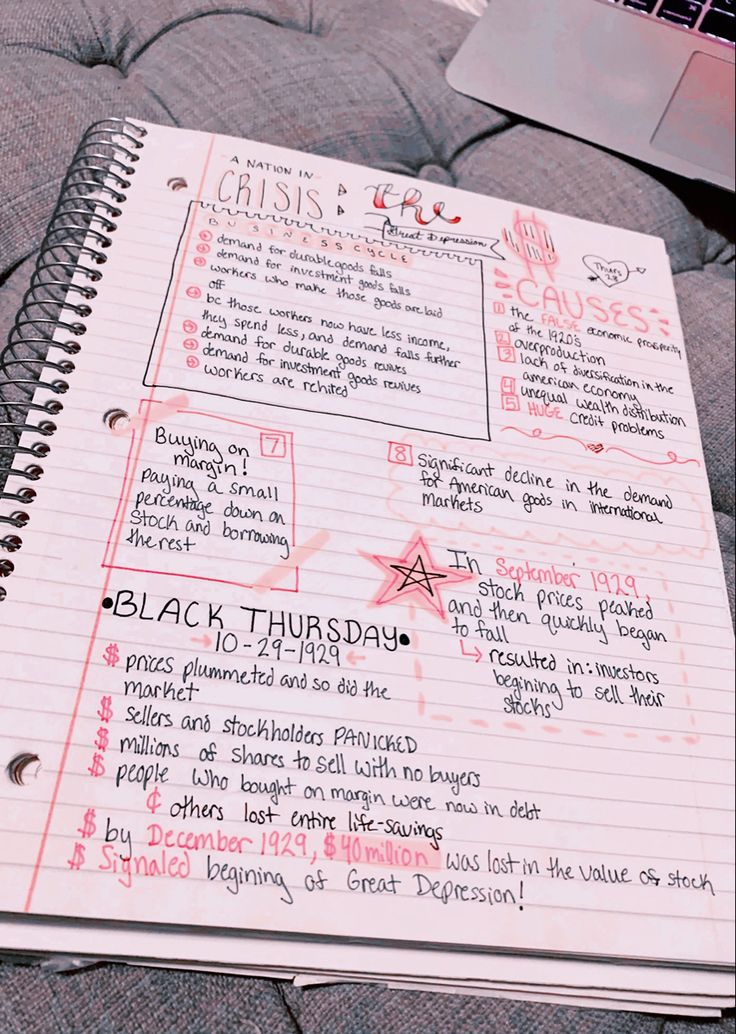 A NATION IN
CRISIS: The
Great Depression
BUSINESS CYCLE
demand for durable goods falls
demand for investment goods falls
workers who make those goods are laid
off
bc those workers now have less income,
they spend less, and demand falls further
demand for durable goods revives
demand for investment goods revives
workers are rehired
$
Thurs
CAUSES:
1 the FALSE economic prosperity
of the 1920's
2 overproduction
3 lack of diversification in the
american economy
4 unequal wealth distribution
5 HUGE credit problems
Buying on 7
margin!
paying a small
percentage down on
stock and borrowing
the rest
8 Significant decline in the demand
for American goods in international
markets
In September 1929,
stock prices peaked
and then quickly began
to fall
↳ resulted in: investors
begining to sell their
stocks
•BLACK THURSDAY•
→ 10-29-1929 ←
$ prices plummeted and so did the
market
$ sellers and stockholders PANICKED
$ millions of shares to sell with no buyers
$ people who bought on margin were now in debt
¢ others lost entire life-savings
$ by December 1929, $40 million was lost in the value of stock
$ Signaled begining of Great Depression!